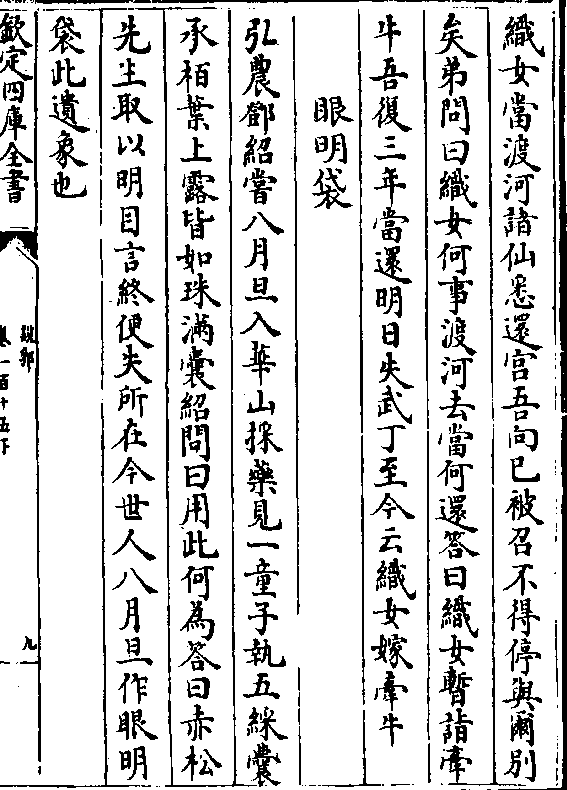 織女當渡河諸仙悉還宫吾向已被召不得停與爾别
矣弟問曰織女何事渡河去當何還答曰織女暫詣牽
牛吾復三年當還明日失武丁至今云織女嫁牽牛
眼明袋
弘農鄧紹嘗八月旦入華山採藥見一童子執五綵囊
承栢葉上露皆如珠滿囊紹問曰用此何為答曰赤松
先生取以明目言終便失所在今世人八月旦作眼明
袋此遺象也
欽定四庫全書
說郛
卷一百十五下
九